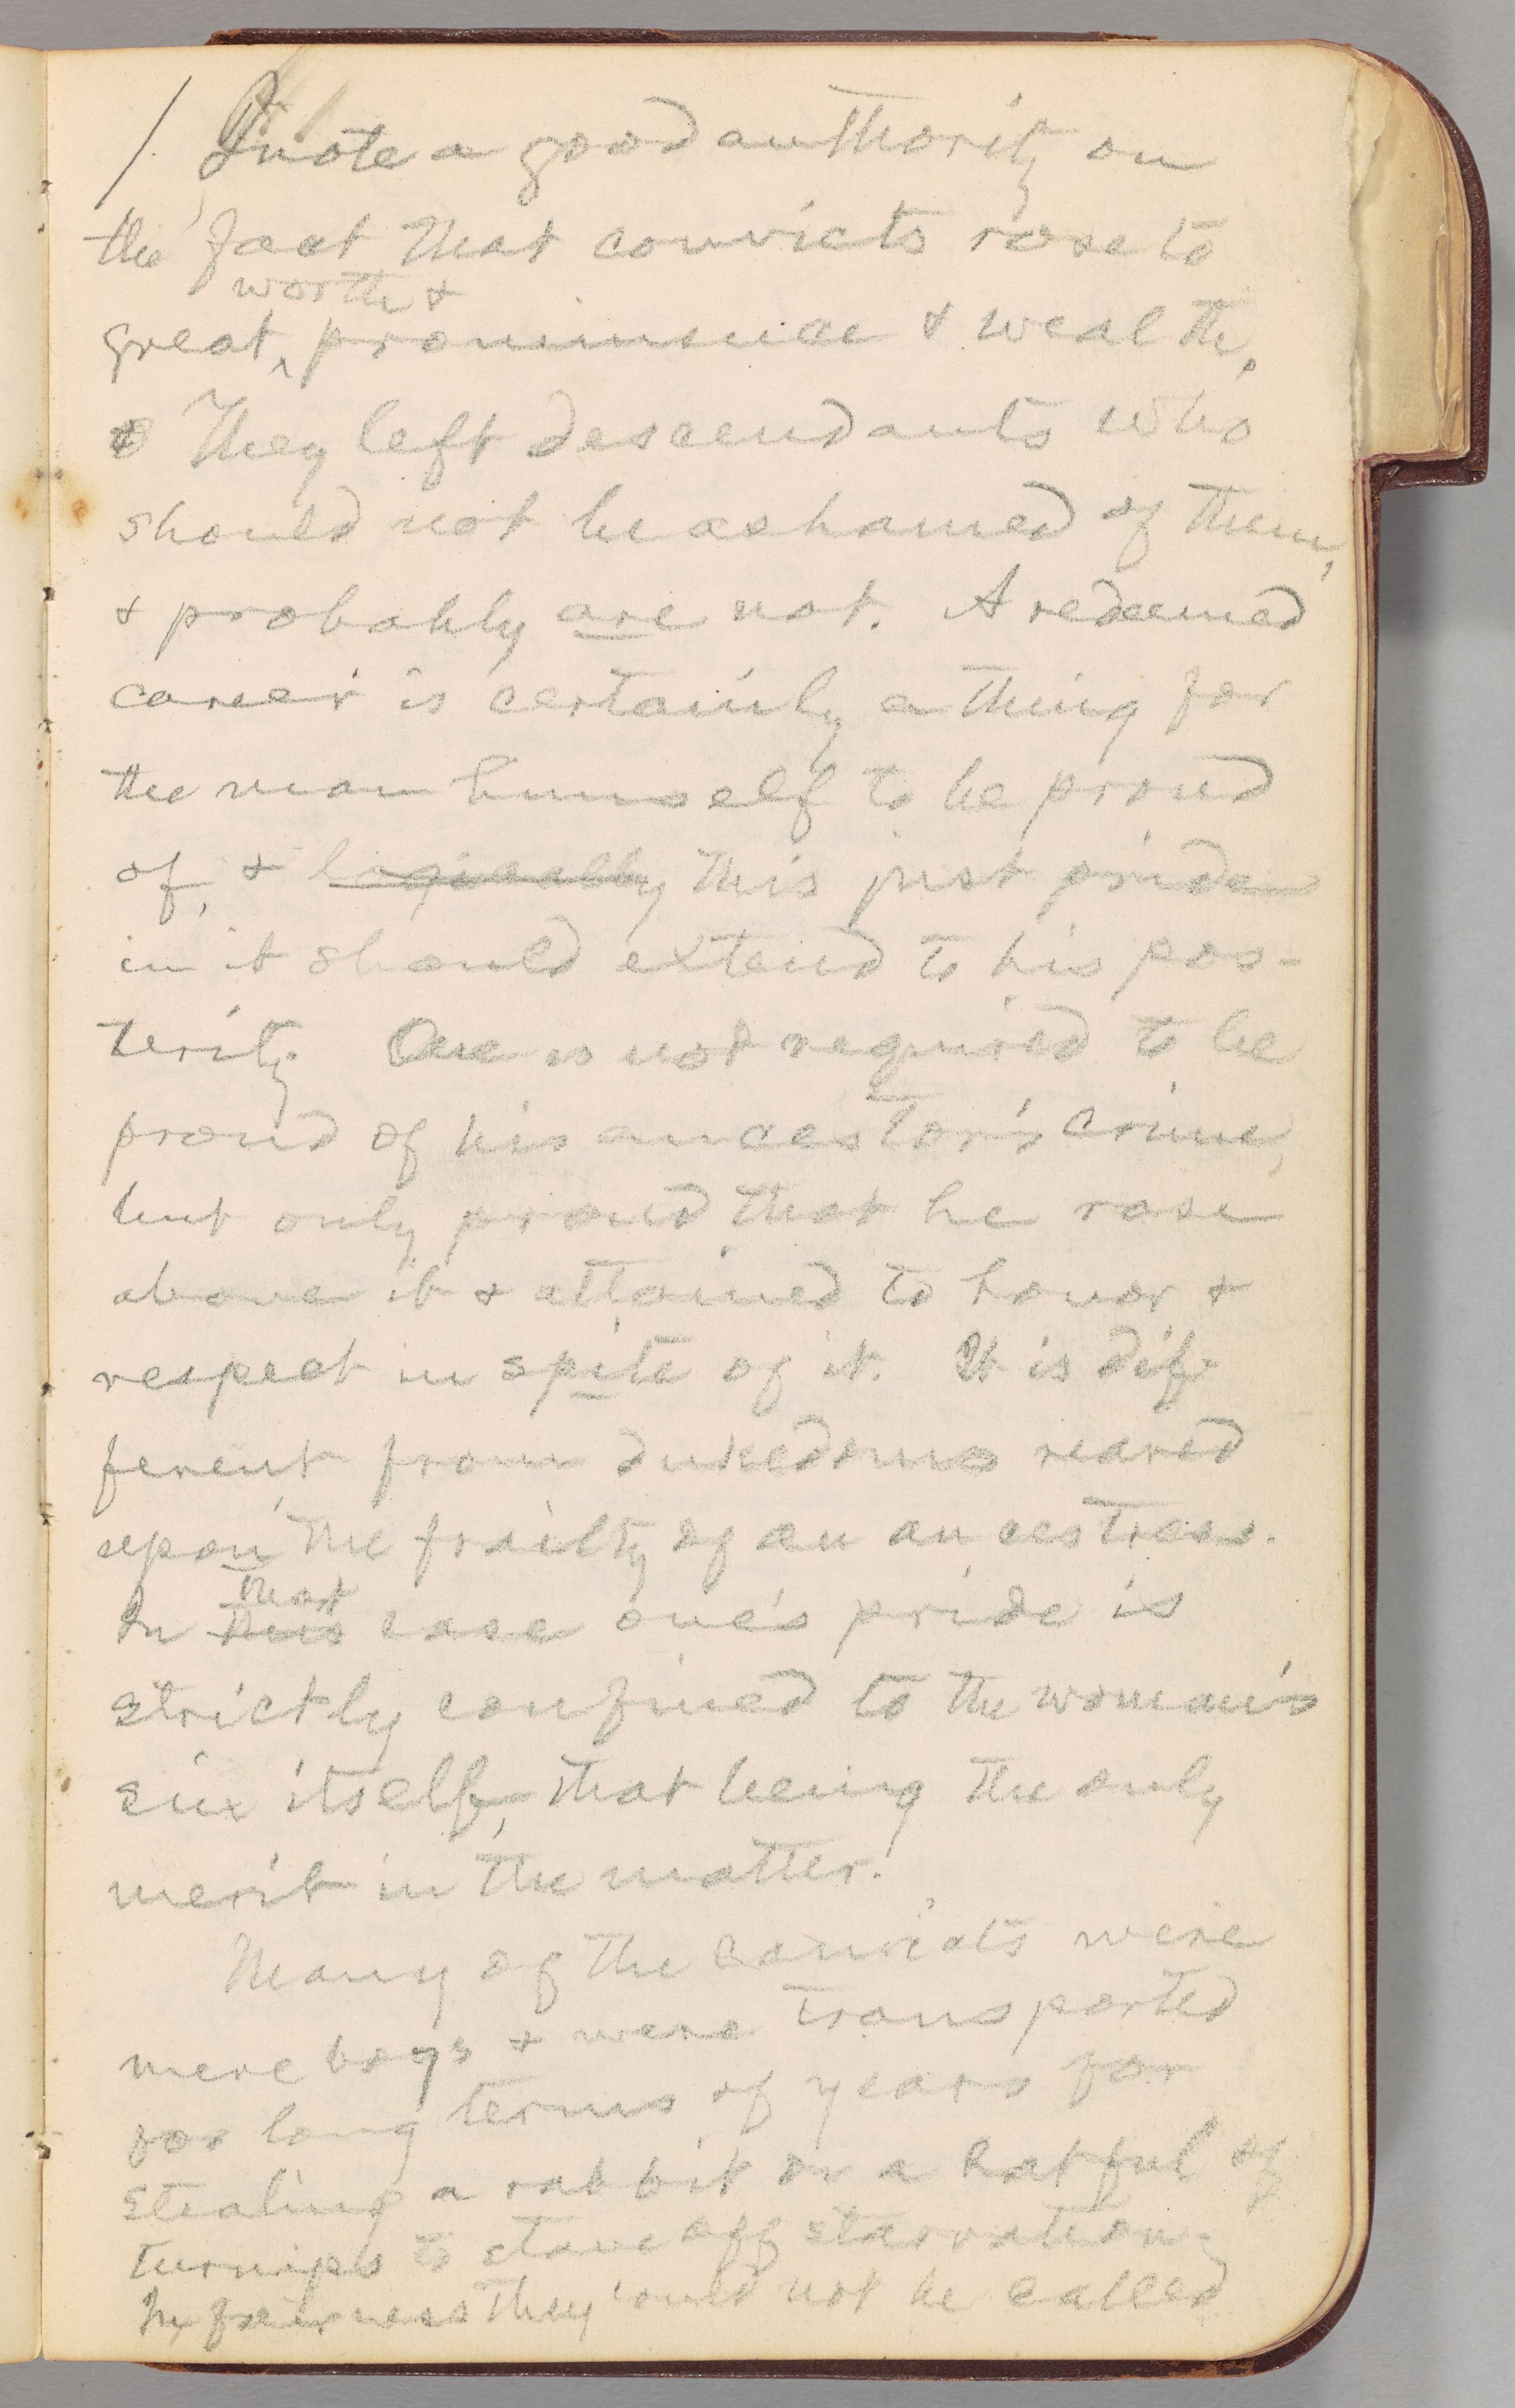 / Quote a good authority on
the fact that convicts rose to
worth &
great ‸ prominence & wealth.
They left descendants who
should not be ashamed of them,
& probably are not. A redeemed
career is certainly a thing for
the man himself to be proud
of, & logically this just pride
in it should extend to his pos-
terity. One is not required to be
proud of his ancestor's crime,
but only proud that he rose
above it & attained to honor &
respect in spite of it. It is dif-
ferent from dukedoms reared
upon the frailty of an ancestress.
that
In this case one's pride is
strictly confined to the woman's
sin itself, that being the only
merit in the matter.
Many of the convicts were
mere boys & were transported
for long terms of years for
stealing a rabbit or a hatful of
turnips to stave off starvation.
In fairness they could not be called